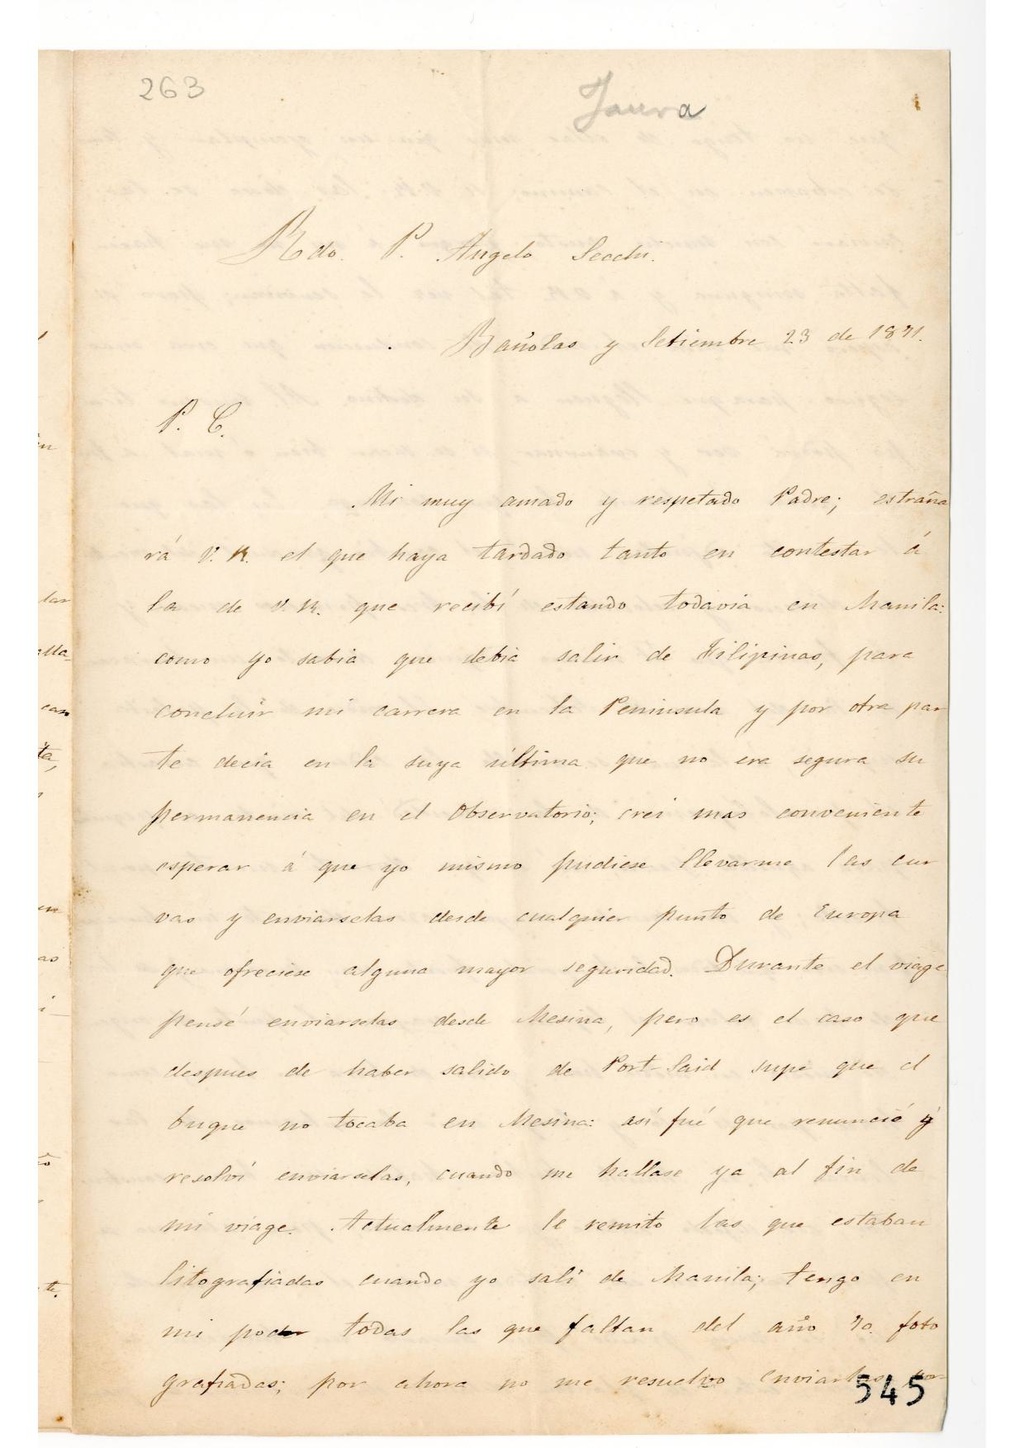 263
Jaura
Rdo. P. Angelo Secchi.
Bañolas y Setiembre 23 de 1871.
P. C.
Mi muy amado y respetado Padre; estraña
rá V. R. el que haya tardado tanto en contestar á
la de V. R. que recibí estando todavia en Manila:
como yo sabia que debia salir de Filipinas, para
concluir mi carrera en la Peninsula y por otra par
te decia en la suya última que no era segura su
permanencia en el Observatorio; crei mas conveniente
esperar á que yo mismo pudiese llevarme las cur
vas y enviarselas desde cualquier punto de Europa
que ofreciese alguna mayor seguridad. Durante el viage
pensé enviarselas desde Mesina, pero es el caso que
despues de haber salido de Port-Said supe que el
buque no tocaba en Mesina: así fué que renuncié y
resolví enviarselas, cuando me hallase ya al fin de
mi viage. Actualmente le remito las que estaban
litografiadas cuando yo salí de Manila; tengo en
mi poder todas las que faltan del año 70. foto
grafiadas; por ahora no me resuelvo enviarlas
545